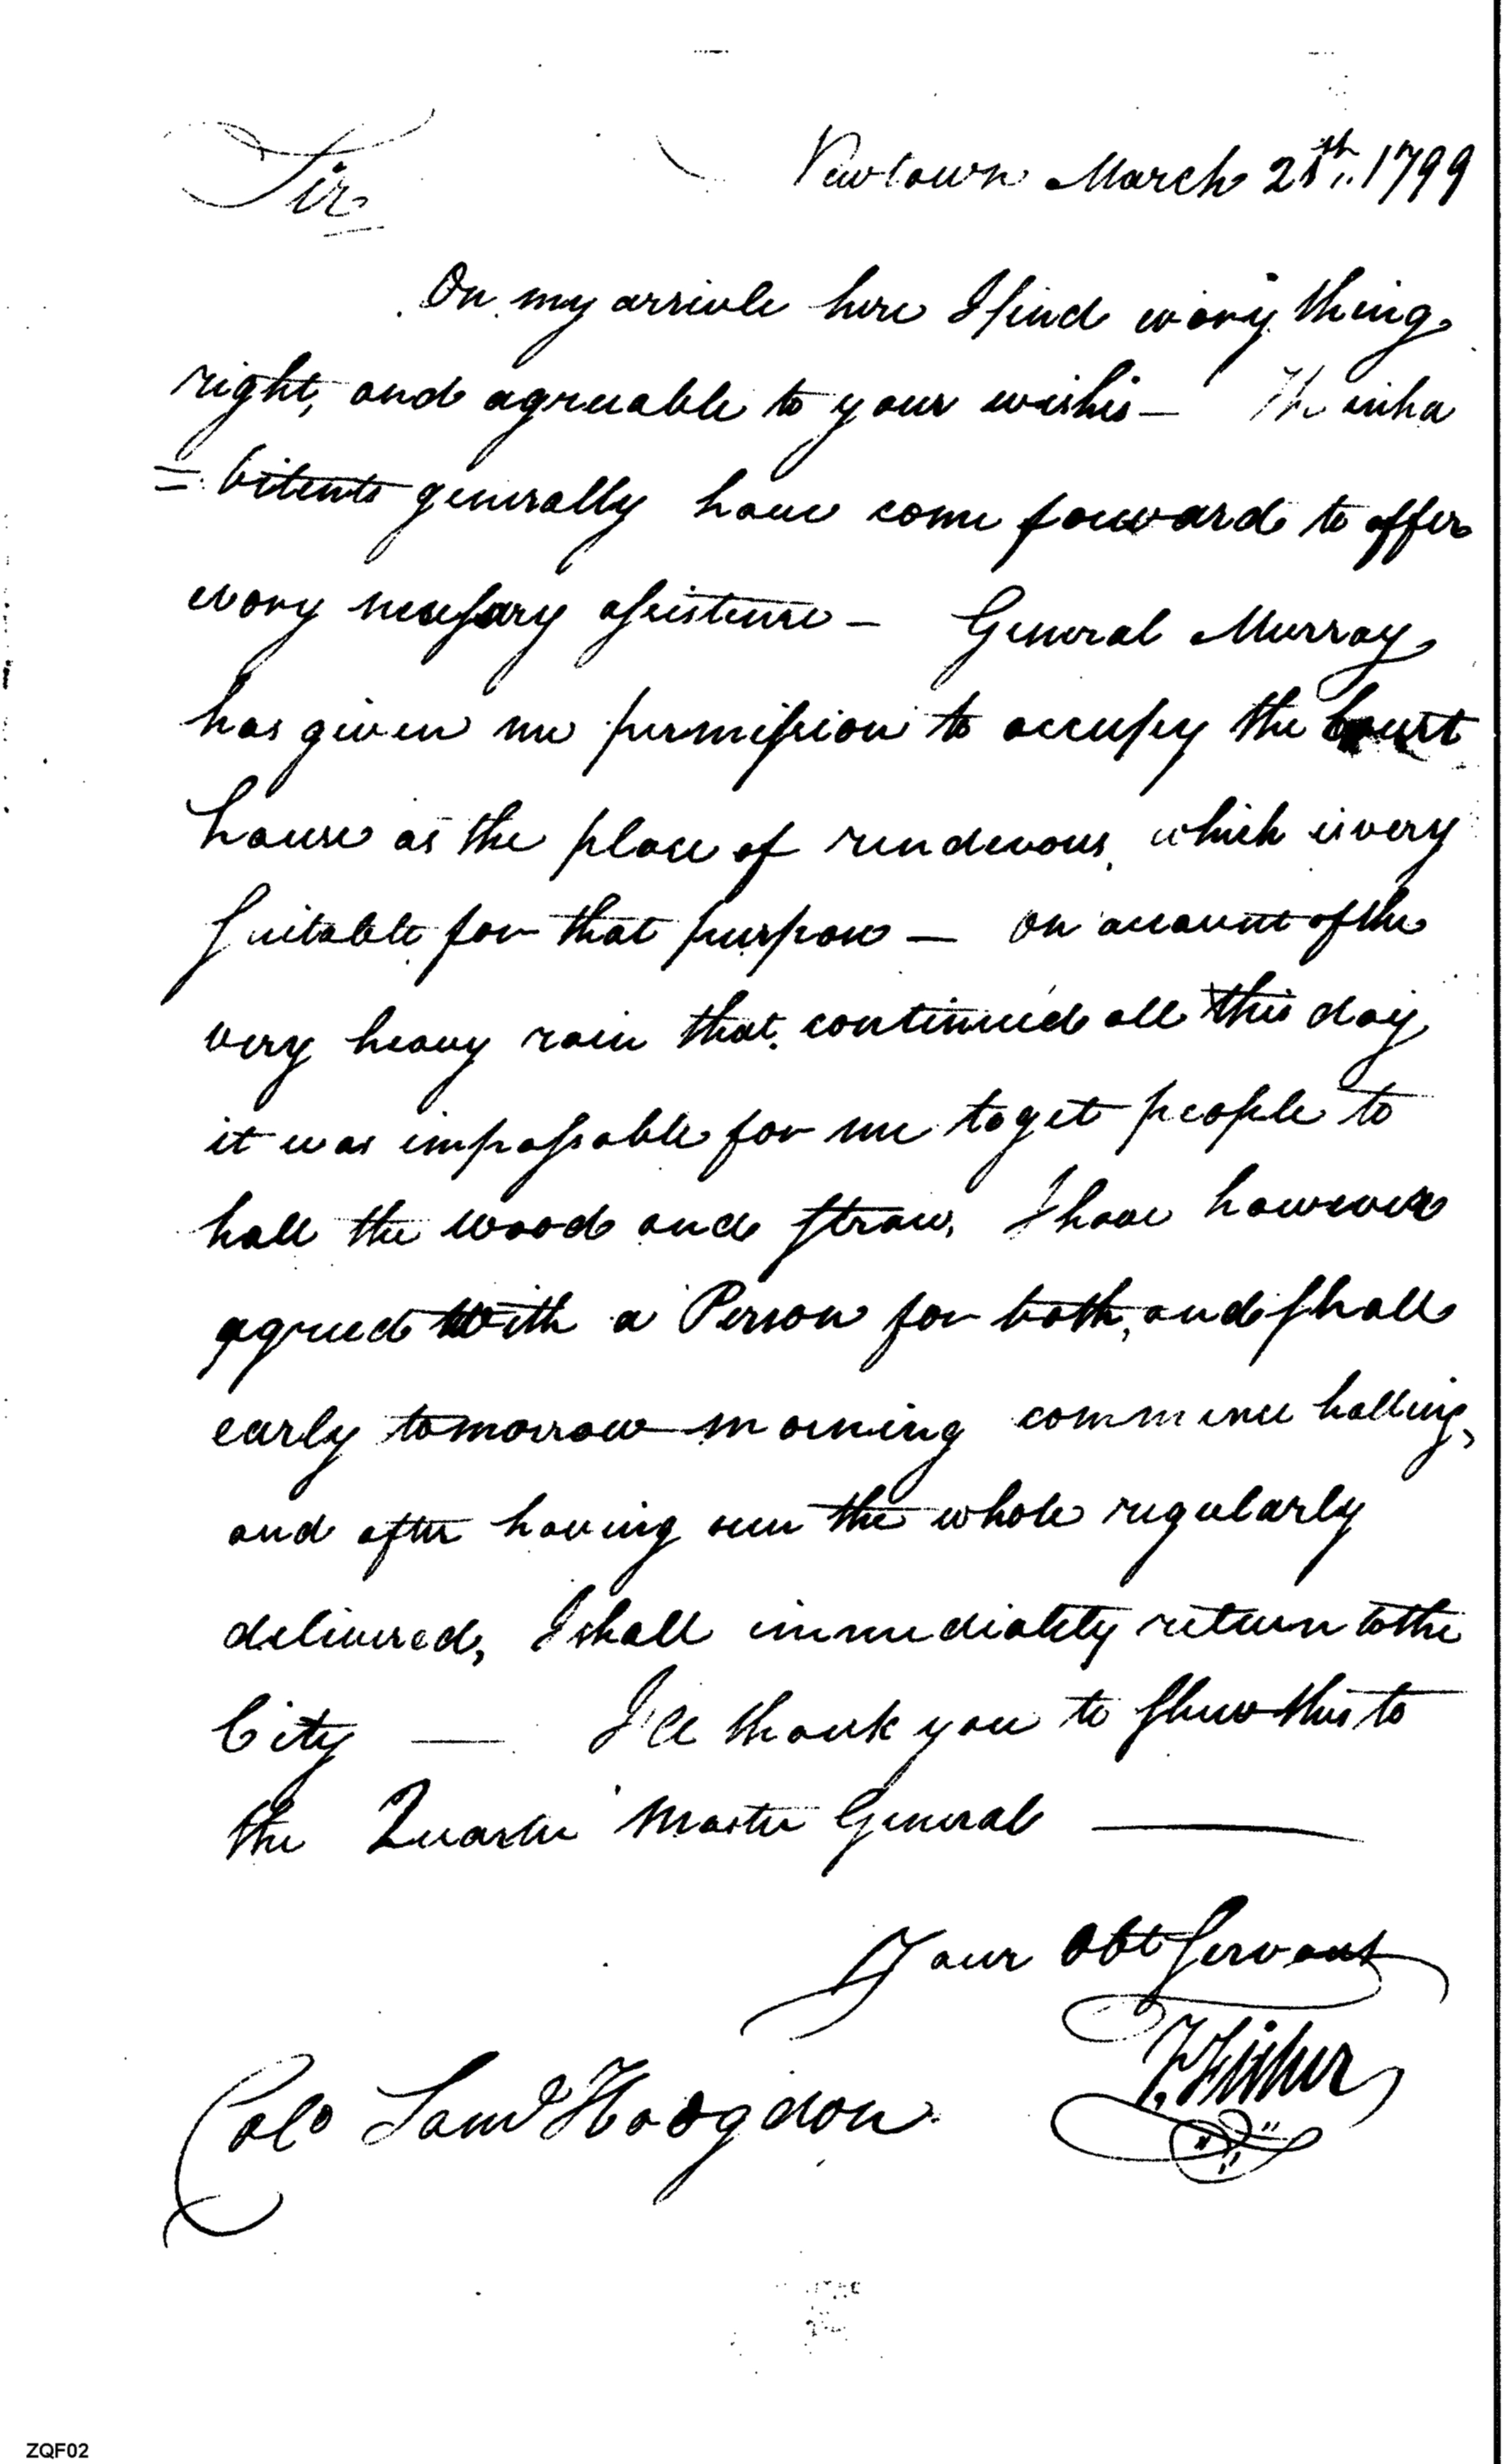 Newtown March 28th,, 1799
Sir
On my arrivle here I find every thing
right, and agreeable to your wishes — The inha
=bitents generally have come forward to offer
every necessary assistense — General Murray
has given me permission to occupy the Court
house as the place of rendevous, which is very
suitable for that purpose — on account of the
very heavy rain that continued all this day
it was impossable for me to get people to
hall the wood and straw, I have however
agreed with a Person for both, and shall
early tomorrow morning commence halling,
and after having seen the whole regularly
delivered, I shall immediately return to the
City — I'll thank you to shew this to
the Quarter Master General —
Your Obt Servant
Fisher
Colo Saml Hodgdon
ZQF02